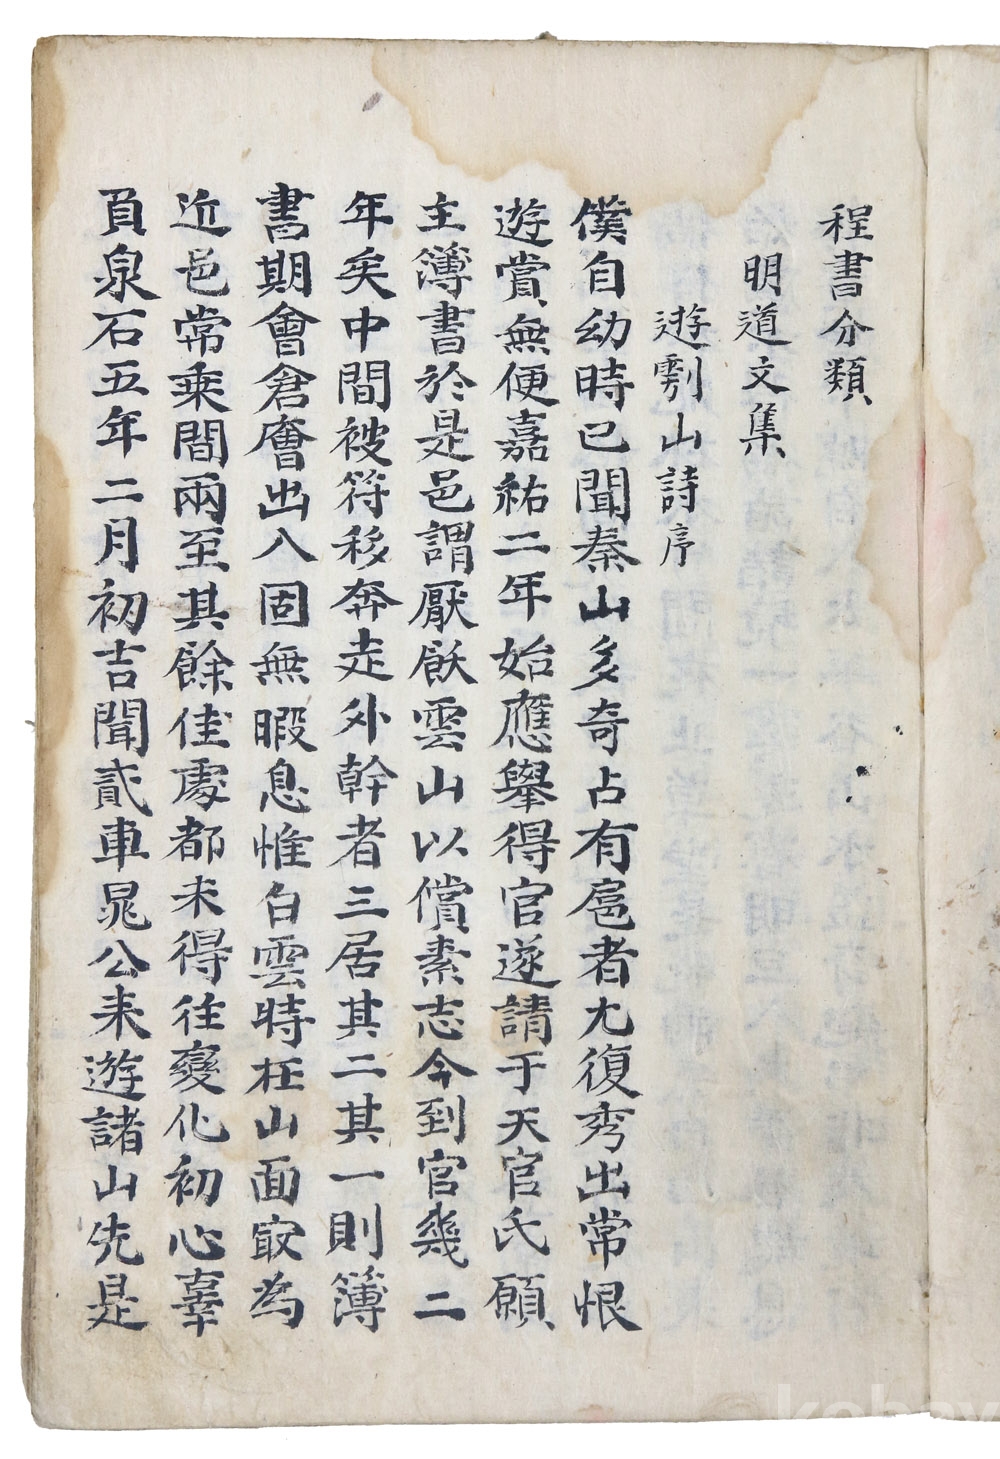 程書分類
明道文集
遊鄠山詩序
僕自幼時已聞秦山多奇占有扈者尤復秀出常恨
遊賞無便嘉祐二年始應舉得官遂請于天官氏願
主簿書於是邑謂厭飫雲山以償素志今到官幾二
年矣中間被符移奔走外幹者三居其二其一則簿
書期會倉廥出入固無暇息惟白雲時在山面㝡為
近邑常乗間兩至其餘佳處都未得往變化初心辜
負泉石五年二月初吉聞貳車晁公来遊諸山先是